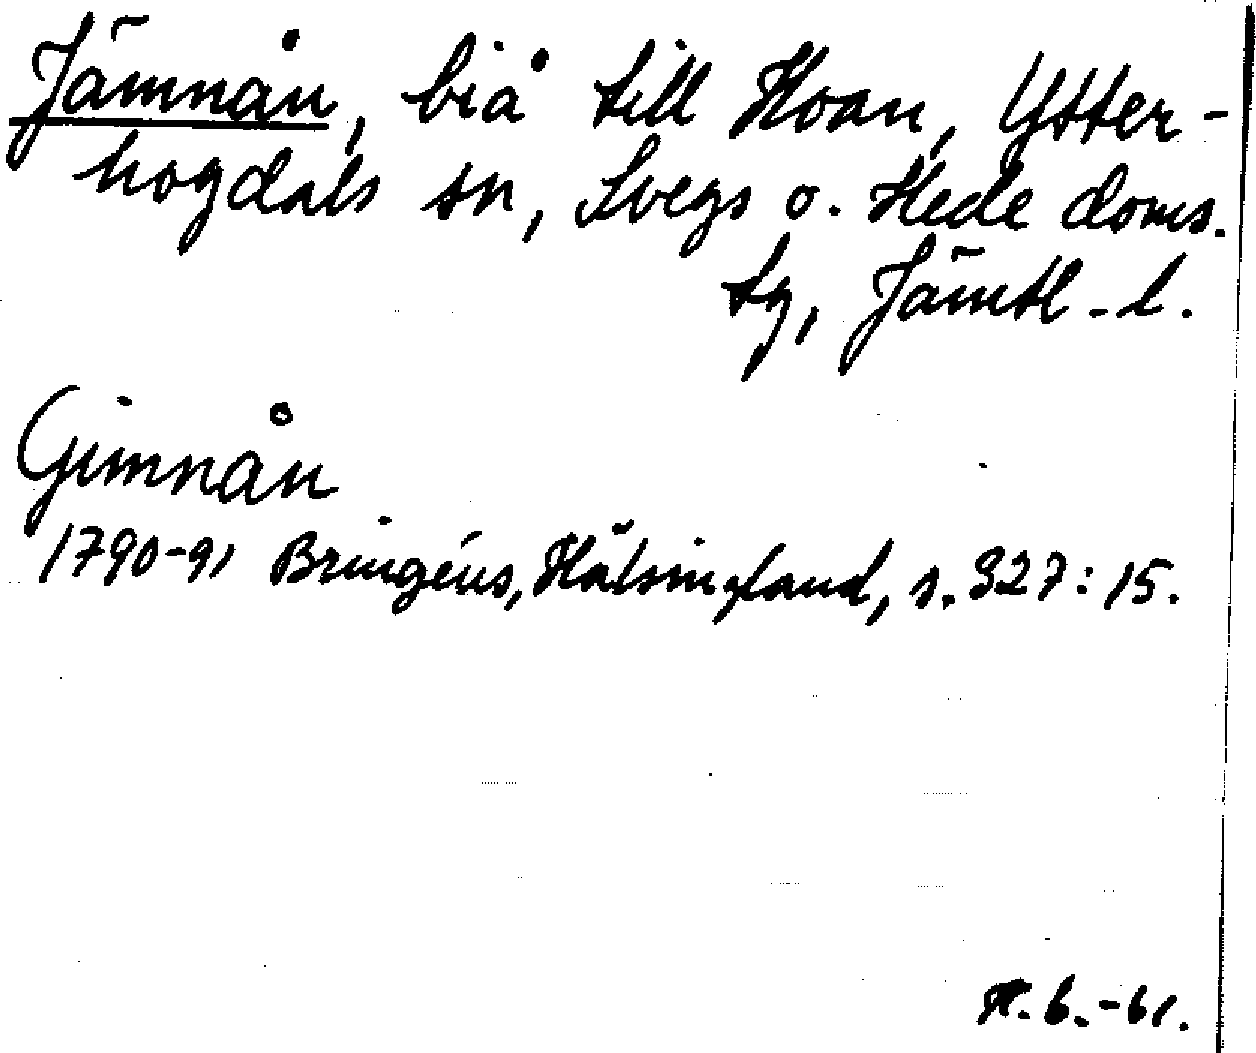 Jämnån, biå till Hoan, Ytter-
hogdals sn, Svegs o. Hede doms.
tg, Jämtl. l.
Gimnån
1790-91 Bringéus, Hälsingland, s. 327:15.